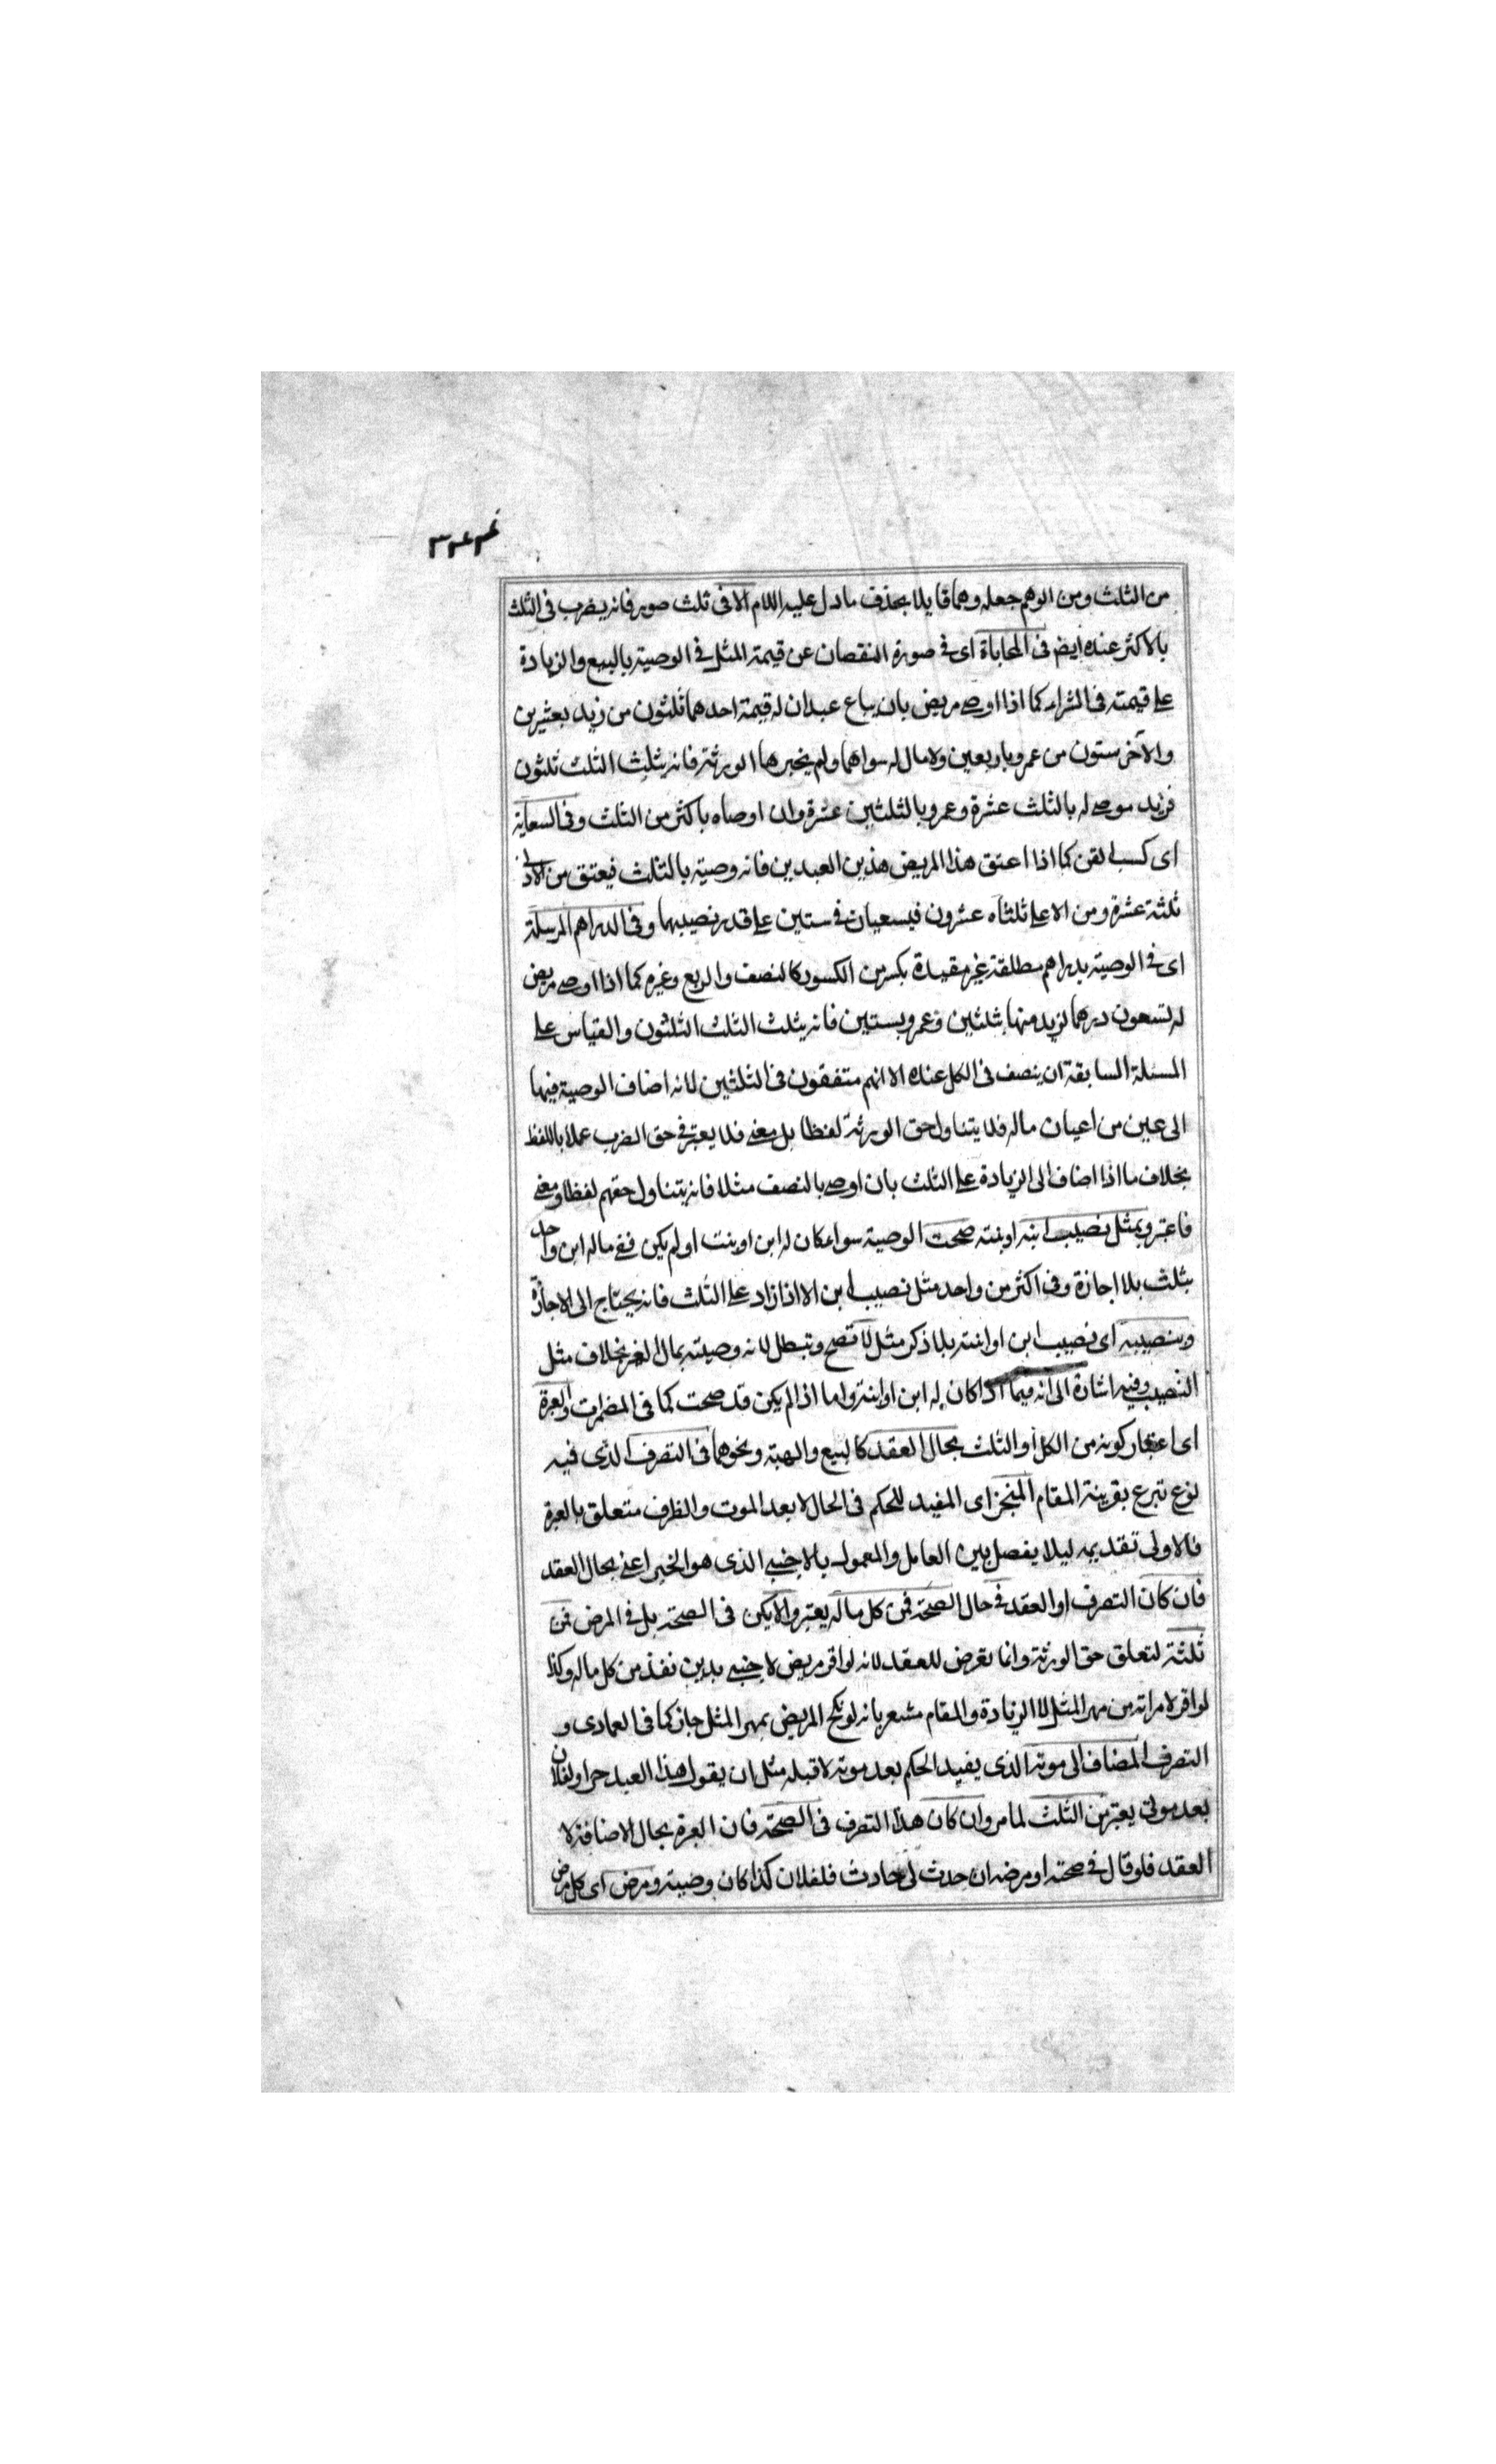 من الثلث ومن الوهم جعله وهما قايلا بحذف ما دل عليه اللام الا فى ثلث صور فانه يضرب فى الثلث
بالاكثر عنده ايض فى المحاباة اى فى صورة النقصان عن قيمة المثل فى الوصية بالبيع والزيادة
على قيمته فى الشراء كما اذا اوصى مريض بان يباع عبدان له قيمة احدهما ثلثون من زيد بعشرين
والآخر ستون من عمرو باربعين ولا مال له سواهما ولم يخبرها الورثة فانه يثلث الثلث ثلثون
فزيد موصى له بالثلث عشرة وعمرو بالثلثين عشرة وان اوصاه باكثر من الثلث وفى السعاية
اى كسب القن كما اذا اعتق هذا المريض هذين العبدين فانه وصية بالثلث فيعتق من الادنى
ثلثه عشرة ومن الاعلى ثلثاه عشرون فيسعيان فى ستين على قدر نصيبهما وفى الدراهم المرسلة
اى فى الوصية بدراهم مطلقة غير مقيدة بكسر من الكسور كالنصف والربع وغيره كما اذا اوصى مريض
له تسعون درهما لزيد منها بثلثين وعمرو بستين فانه يثلث الثلث الثلثون والقياس على
المسئلة السابقة ان ينصف فى الكل عنده الا انهم متفقون فى الثلثين لانه اضاف الوصية فيها
الى عين من اعيان ماله فلا يتناول حق الورثة لفظا بل معنى فلا يعتبر فى حق الضرب عملا باللفظ
بخلاف ما اذا اضاف الى الزيادة على الثلث بان اوصى بالنصف مثلا فانه يتناول حقهم لفظا ومعنى
فاعتبر وبمثل نصيب ابنه او بنته صحت الوصية سواء كان له ابن او بنت او لم يكن ففى ماله ابن واحد
بثلث بلا اجازة وفى اكثر من واحد مثل نصيب ابن الا اذا زاد على الثلث فانه يحتاج الى الاجازة
وبنصيبه اى نصيب ابن او ابنته بلا ذكر مثل لا تصح وتبطل لانه وصيته بمال الغير بخلاف مثل
النصيب وفيه اشارة الى انه فيما اذا كان له ابن او ابنته واما اذا لم يكن قد صحت كما فى المضمرات والعبرة
اى اعتبار كونه من الكل او الثلث بحال العقد كالبيع والهبة ونحوهما فى التصرف الذى فيه
نوع تبرع بقرينة المقام المنجز اى المفيد للحكم فى الحال لا بعد الموت والظرف متعلق بالعبرة
فالاولى تقديمه ليلا يفصل بين العامل والمعمول بالاجنبى الذى هو الخبر اعنى بحال العقد
فان كان التصرف او العقد فى حال الصحة فمن كل ماله يعتبر والا يكن فى الصحة بل فى المرض فمن
ثلثه لتعلق حق الورثة وانما تعرض للعقد لانه لو اقر مريض لاجنبى بدين نفذ من كل ماله وكذا
لو اقر لامراته من مهر المثل لا الزيادة والمقام مشعر بانه لو نكح المريض بمهر المثل جاز كما فى العمادى و
التصرف المضاف الى موته الذى يفيد الحكم بعد موته لا قبله مثل ان يقول هذا العبد حر او لفلان
بعد موتى يعتبر من الثلث لما مر وان كان هذا التصرف فى الصحة فان العبرة بحال الاضافة لا
العقد فلو قال فى صحته او مرضه ان حدث لى حادث فلفلان كذا كان وصية ومرض اى كل مرض